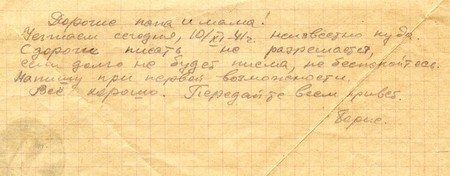 Дорогие папа и мама!
Уезжаем сегодня, 10/XI-41г. неизвестно куда.
С дороги писать не разрешается,
если долго не будет письма, не беспокойтесь.
Напишу при первой возможности.
Всё хорошо. Передайте всем привет.
Борис.